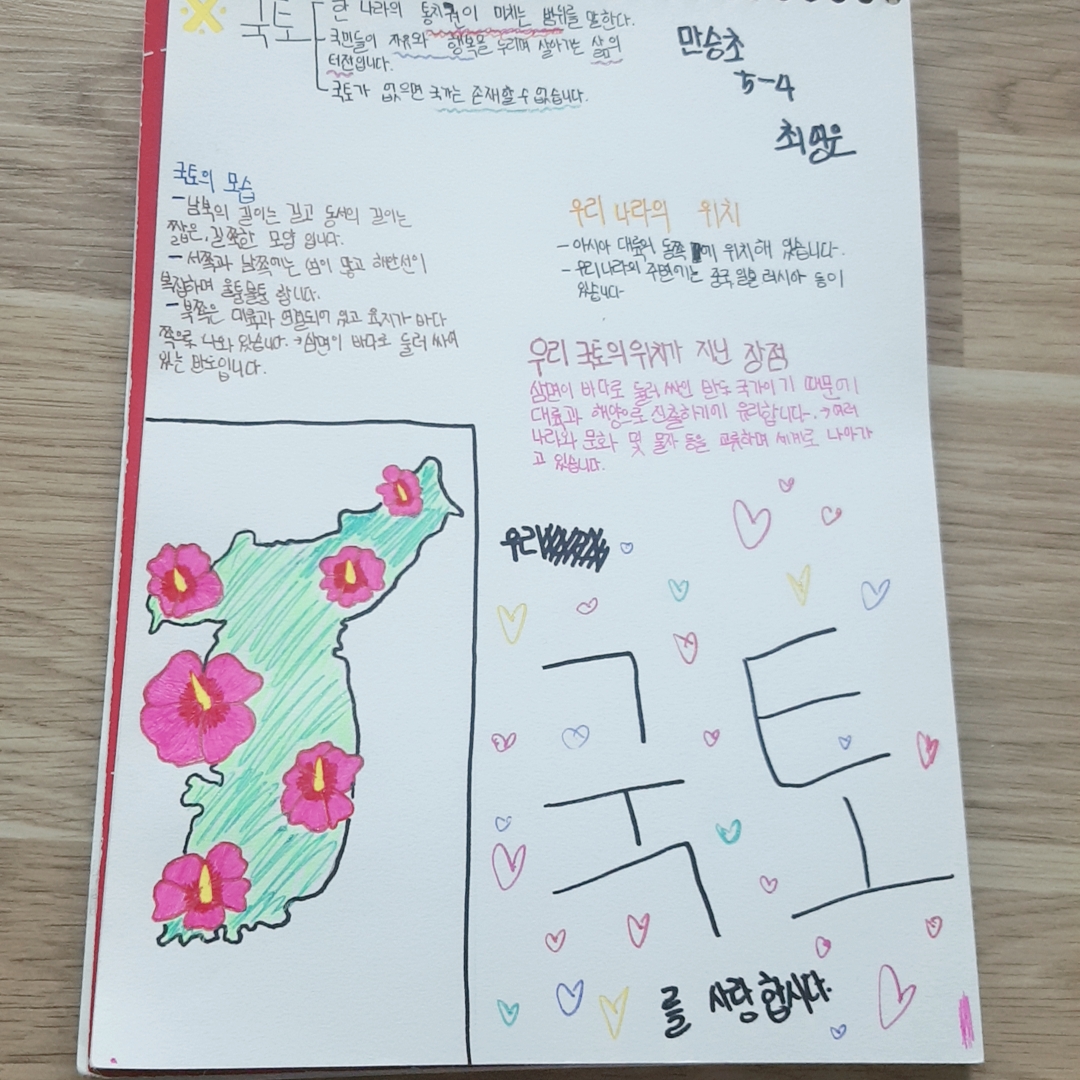 국토
한 나라의 통치권이 미치는 범위를 말한다.
국민들이 자유와 행복을 누리며 살아가는 삶의
터전입니다.
국토가 없으면 국가는 존재할 수 없습니다.
만승초
5-4
최영운
국토의 모습
-남북의 길이는 길고 동서의 길이는
짧은, 길쭉한 모양 입니다.
- 서쪽과 남쪽에는 섬이 많고 해안선이
복잡하며 울퉁불퉁 합니다.
- 북쪽은 대륙과 연결되어 있고 육지가 바다
쪽으로 나와 있습니다. →삼면이 바다로 둘러 싸여
있는 반도입니다.
우리 나라의 위치
- 아시아 대륙의 동쪽에 위치해 있습니다.
- 우리나라의 주변에는 중국 일본 러시아 등이
있습니다
우리 국토의 위치가 지닌 장점
삼면이 바다로 둘러 싸인 반도 국가이기 때문에
대륙과 해양으로 진출하기에 유리합니다. →여러
나라와 문화 및 물자 등을 교류하며 세계로 나아가
고 있습니다.
우리
국토
를 사랑합시다.